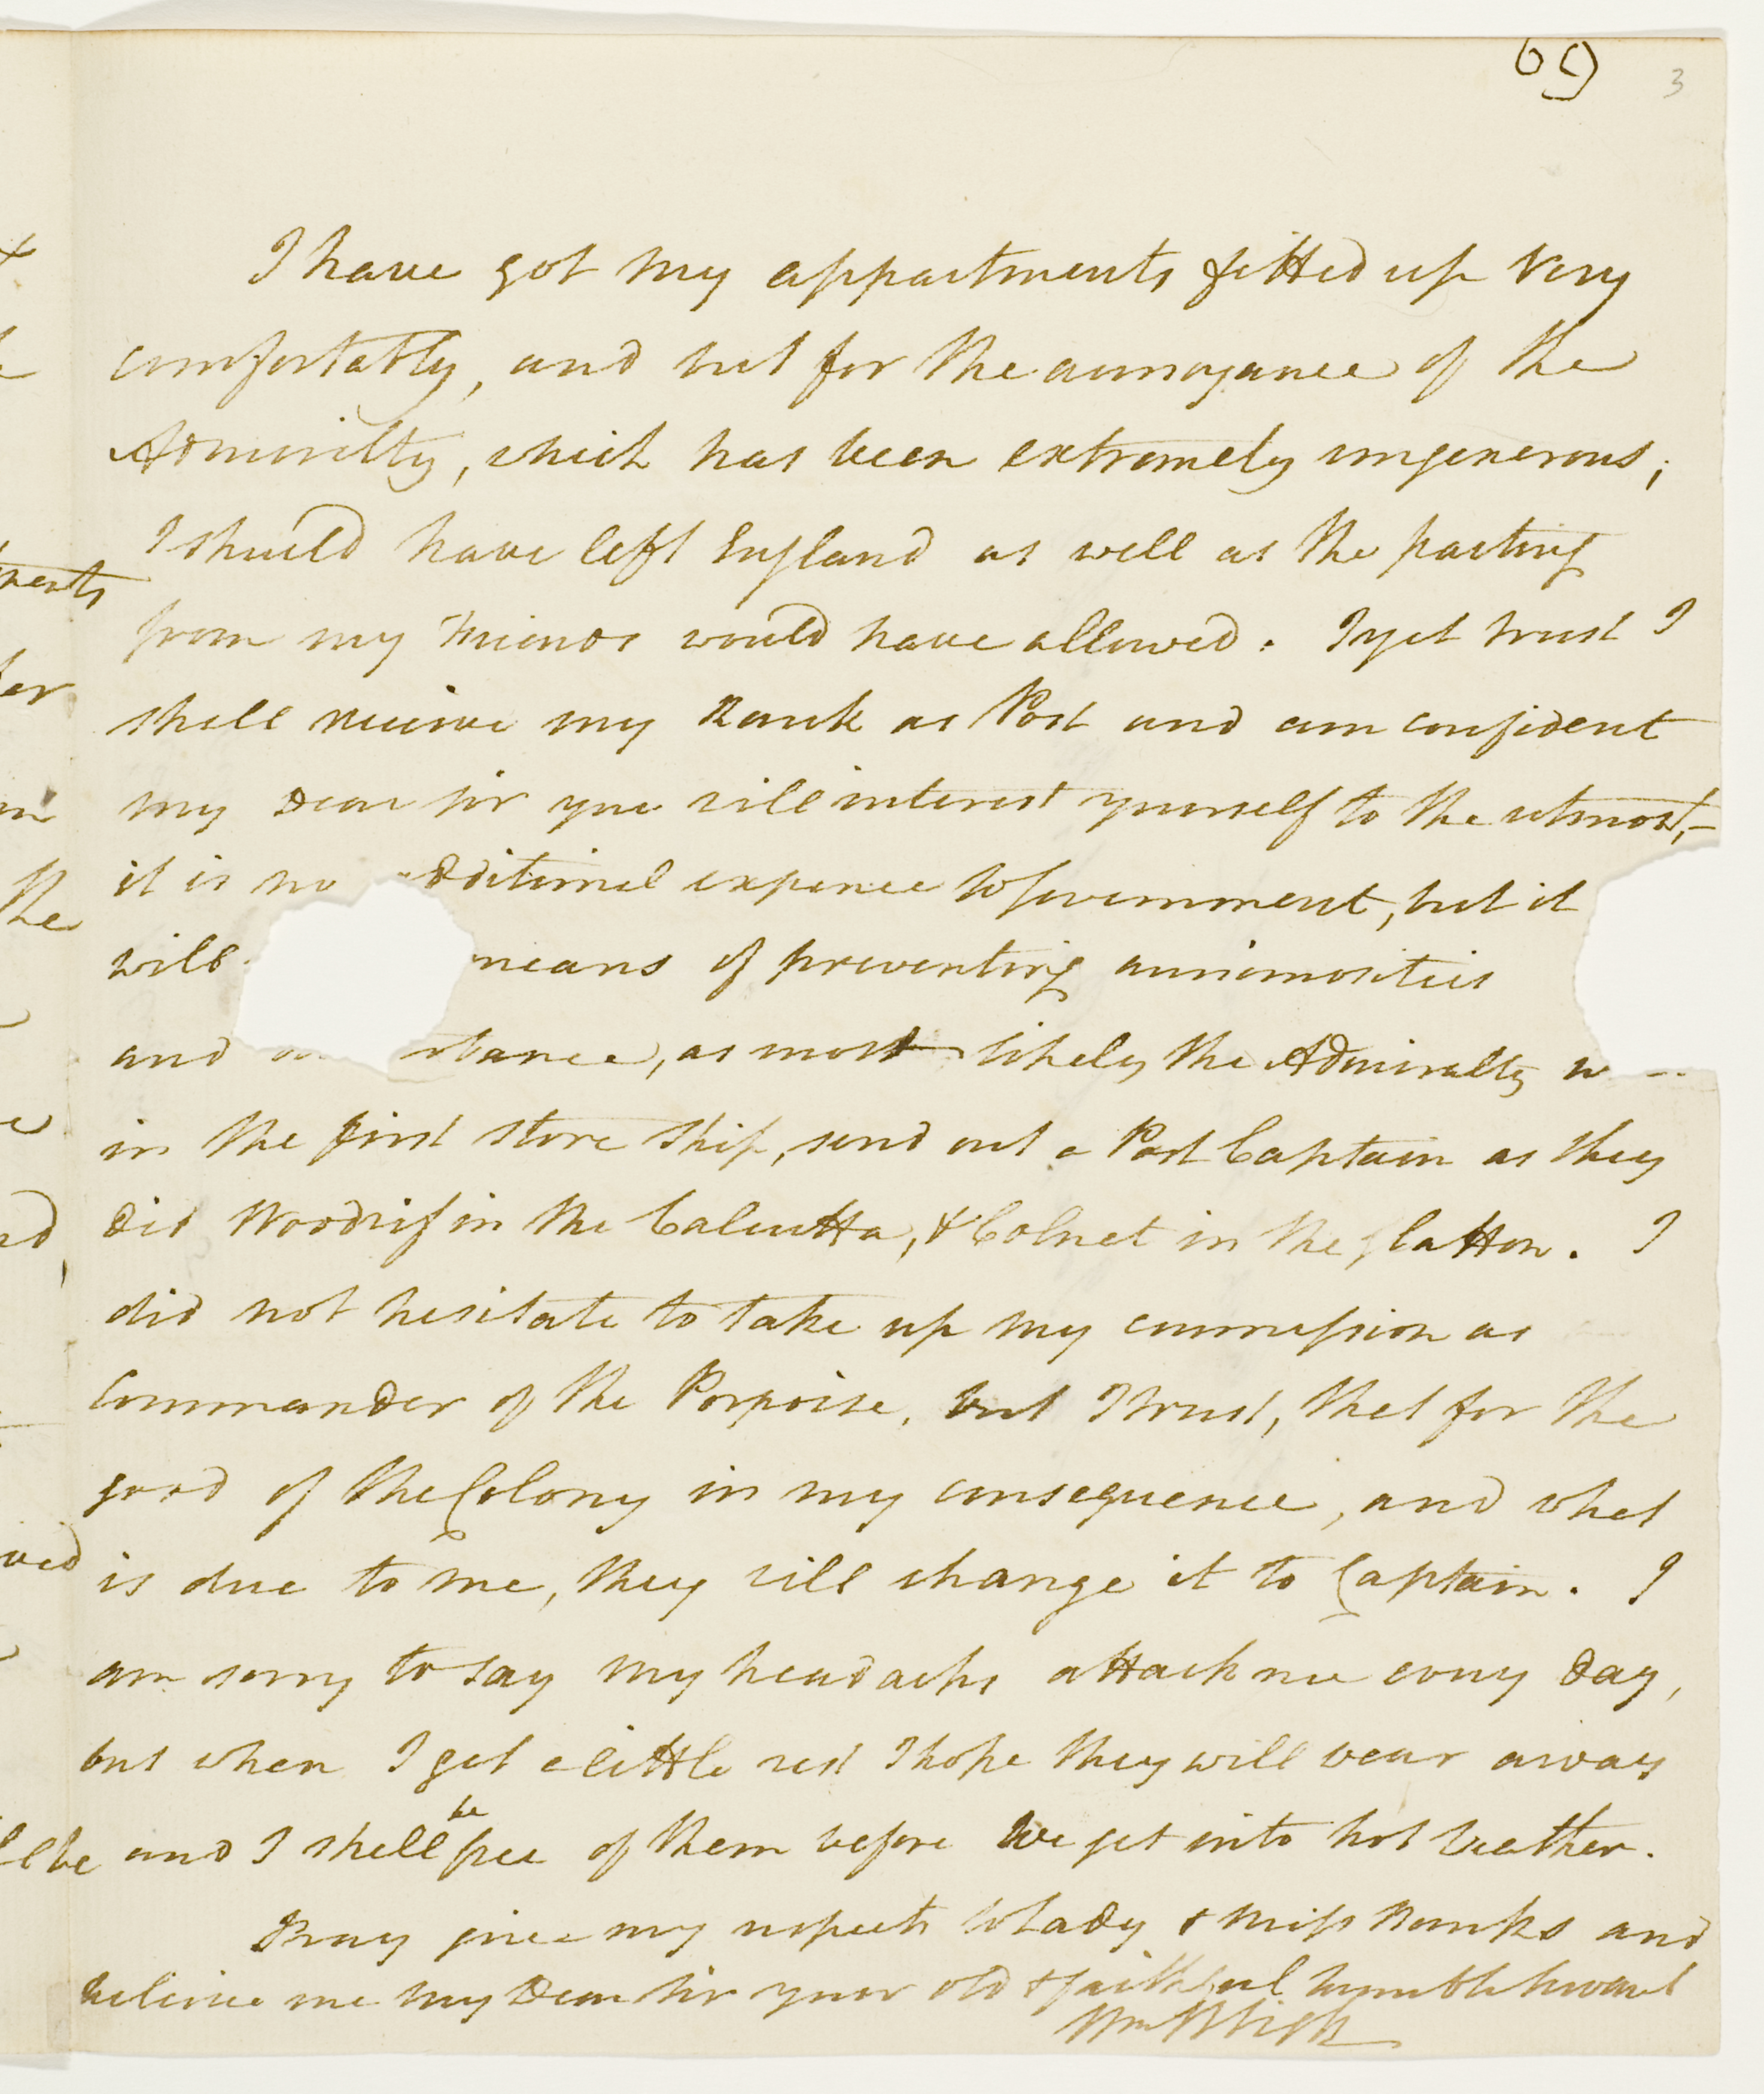 69 3
I have got my appartments fitted up very
comfortably, and but for the annoyance of the
Admirilty, which has been extremely ungenerous;
I should have left England as well as the parting
from my Friends would have allowed. I yet trust I
shall receive my Rank as Post and am confident
my Dear Sir you will interest yourself to the utmost,—
it is no additional expence to Government, but it
will means of preventing animosities
and as most likely the Admiralty
in the first store ship, send out a Post Captain as they
did Woodrif in the Calcutta, & Colnet in the Glatton. I
did not hesitate to take up my commission as
Commander of the Porpoise, but I trust, that for the
good of the Colony in my consequence, and what
is due to me, they will change it to Captain. I
am sorry to say my headachs attack me every day,
but when I get a little rest I hope they will wear away
and I shall be free of them before we get into hot weather.
Pray give my respects to Lady & Miss Banks and
believe me my Dear Sir your old & faithful humble Servant
Wm Bligh
ments
the